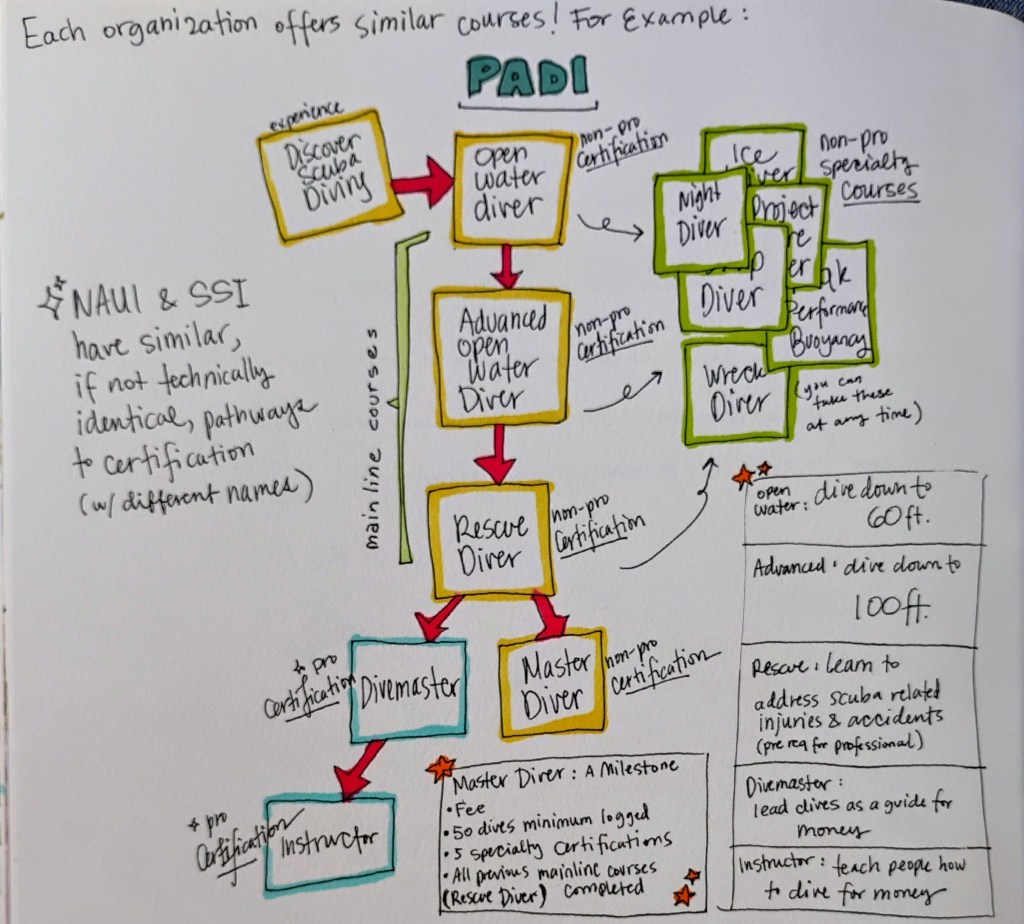 Each organization offers similar courses! For Example:
PADI
experience
Discover
Scuba
Diving
Open
water
diver
non-pro
certification
Ice
Diver
Night
Diver
Project
Diver
Performance
Buoyancy
Wreck
Diver
non-pro
specialty
courses
(you can
take these
at any time)
Advanced
Open
Water
Diver
non-pro
certification
mainline courses
NAUI & SSI
have similar,
if not technically
identical, pathways
to certification
(w/ different names)
Rescue
Diver
non-pro
certification
Divemaster
pro
certification
Master
Diver
non-pro
certification
Instructor
pro
certification
Master Diver: A Milestone
• Fee
• 50 dives minimum logged
• 5 specialty certifications
• All previous mainline courses
(Rescue Diver) completed
open
water: dive down to
60ft.
Advanced: dive down to
100ft.
Rescue: learn to
address scuba related
injuries & accidents
(pre req for professional)
Divemaster:
lead dives as a guide for
money
Instructor: teach people how
to dive for money